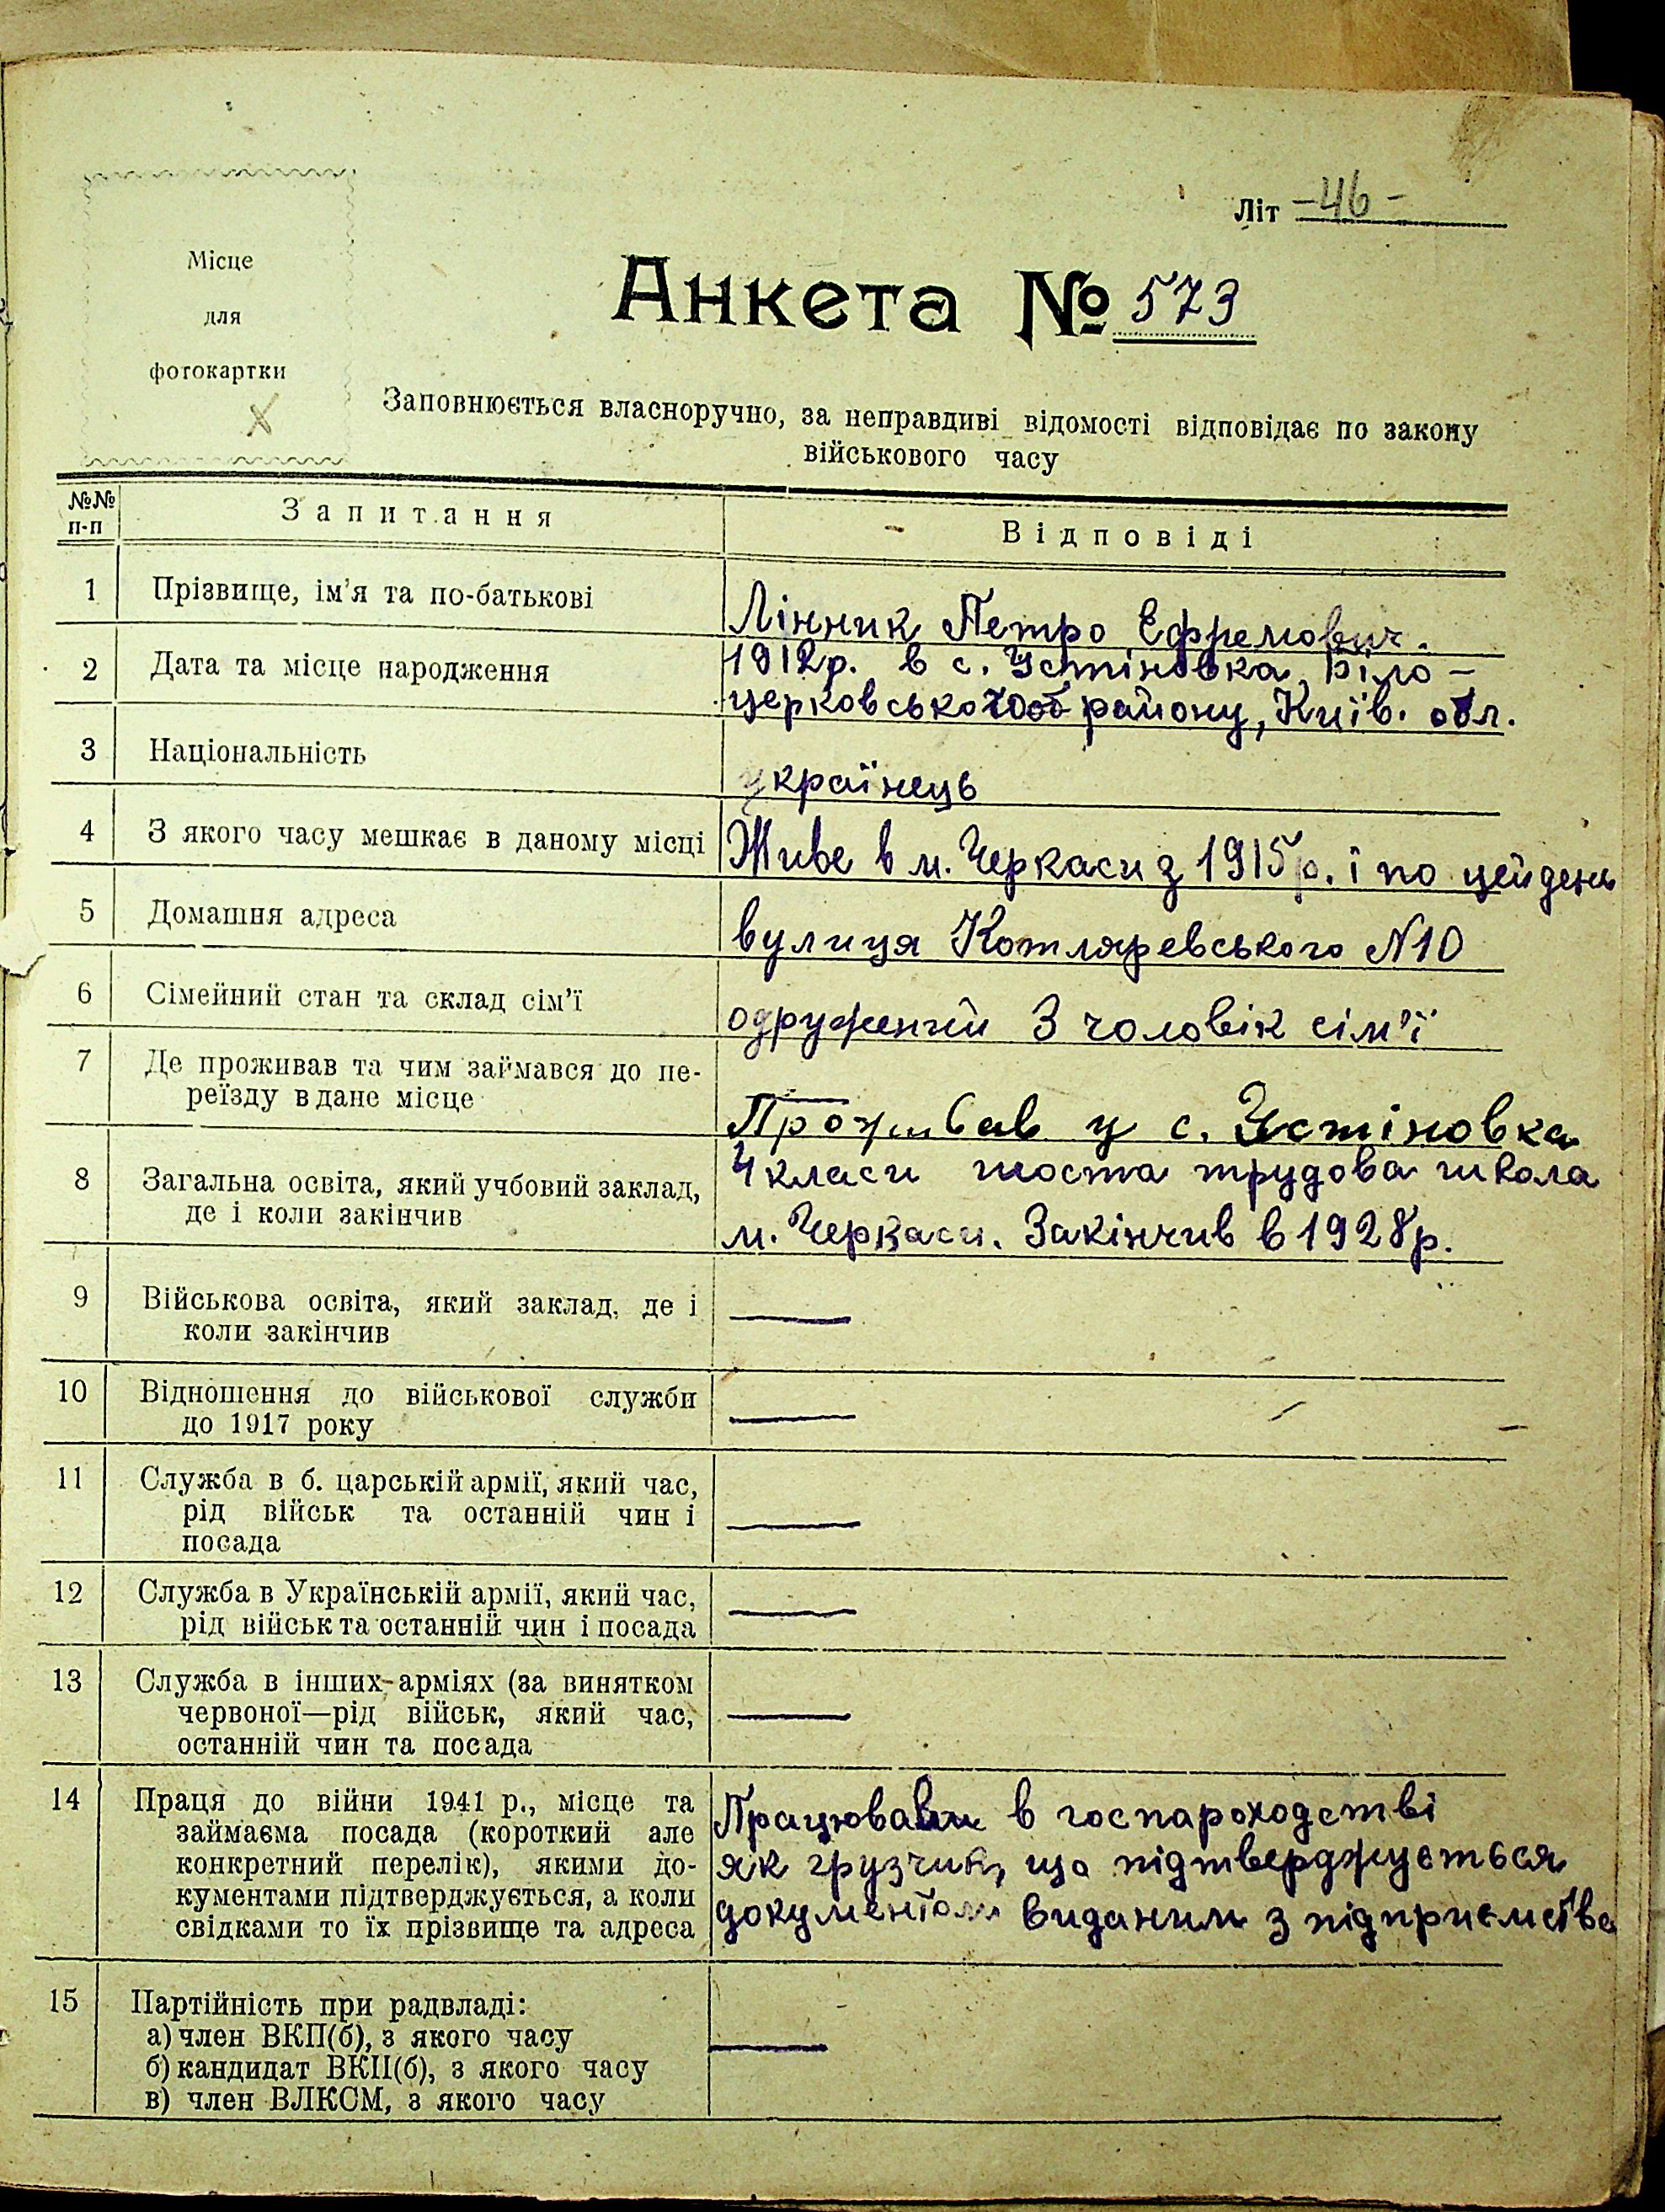 Літ -46-
Місце
для
фотокартки
Анкета № 573
Заповнюється власноручно, за неправдиві відомості відповідає по закону
військового часу
№№ п-п
Запитання
Відповіді
1 Прізвище, ім'я та по-батькові
Лінник Петро Ефремович.
2 Дата та місце народження
1912р. в с. Устіновка, Біло-
церковського району, Київ. обл.
3 Національність
українець
4 З якого часу мешкає в даному місці
Живе в м. Черкаси з 1915р. і по цей день
5 Домашня адреса
вулиця Котляревського N10
6 Сімейний стан та склад сім'ї
одружений 3 чоловік сім'ї
7 Де проживав та чим займався до пе-
реїзду в дане місце
Проживав у с. Устіновка
8 Загальна освіта, який учбовий заклад,
де і коли закінчив
4 класи шоста трудова школа
м. Черкаси. Закінчив в 1928р.
9 Військова освіта, який заклад, де і
коли закінчив
—
10 Відношення до військової служби
до 1917 року
—
11 Служба в б. царській армії, який час,
рід військ та останній чин і
посада
—
12 Служба в Українській армії, який час,
рід військ та останній чин і посада
—
13 Служба в інших арміях (за винятком
червоної—рід військ, який час,
останній чин та посада
—
14 Праця до війни 1941 р., місце та
займаєма посада (короткий але
конкретний перелік), якими до-
кументами підтверджується, а коли
свідками то їх прізвище та адреса
в госпароходстві
як грузчик, що підтверджується
документом виданим з підприємства
15 Партійність при радвладі:
а) член ВКП(б), з якого часу
б) кандидат ВКП(б), з якого часу
в) член ВЛКСМ, з якого часу
—